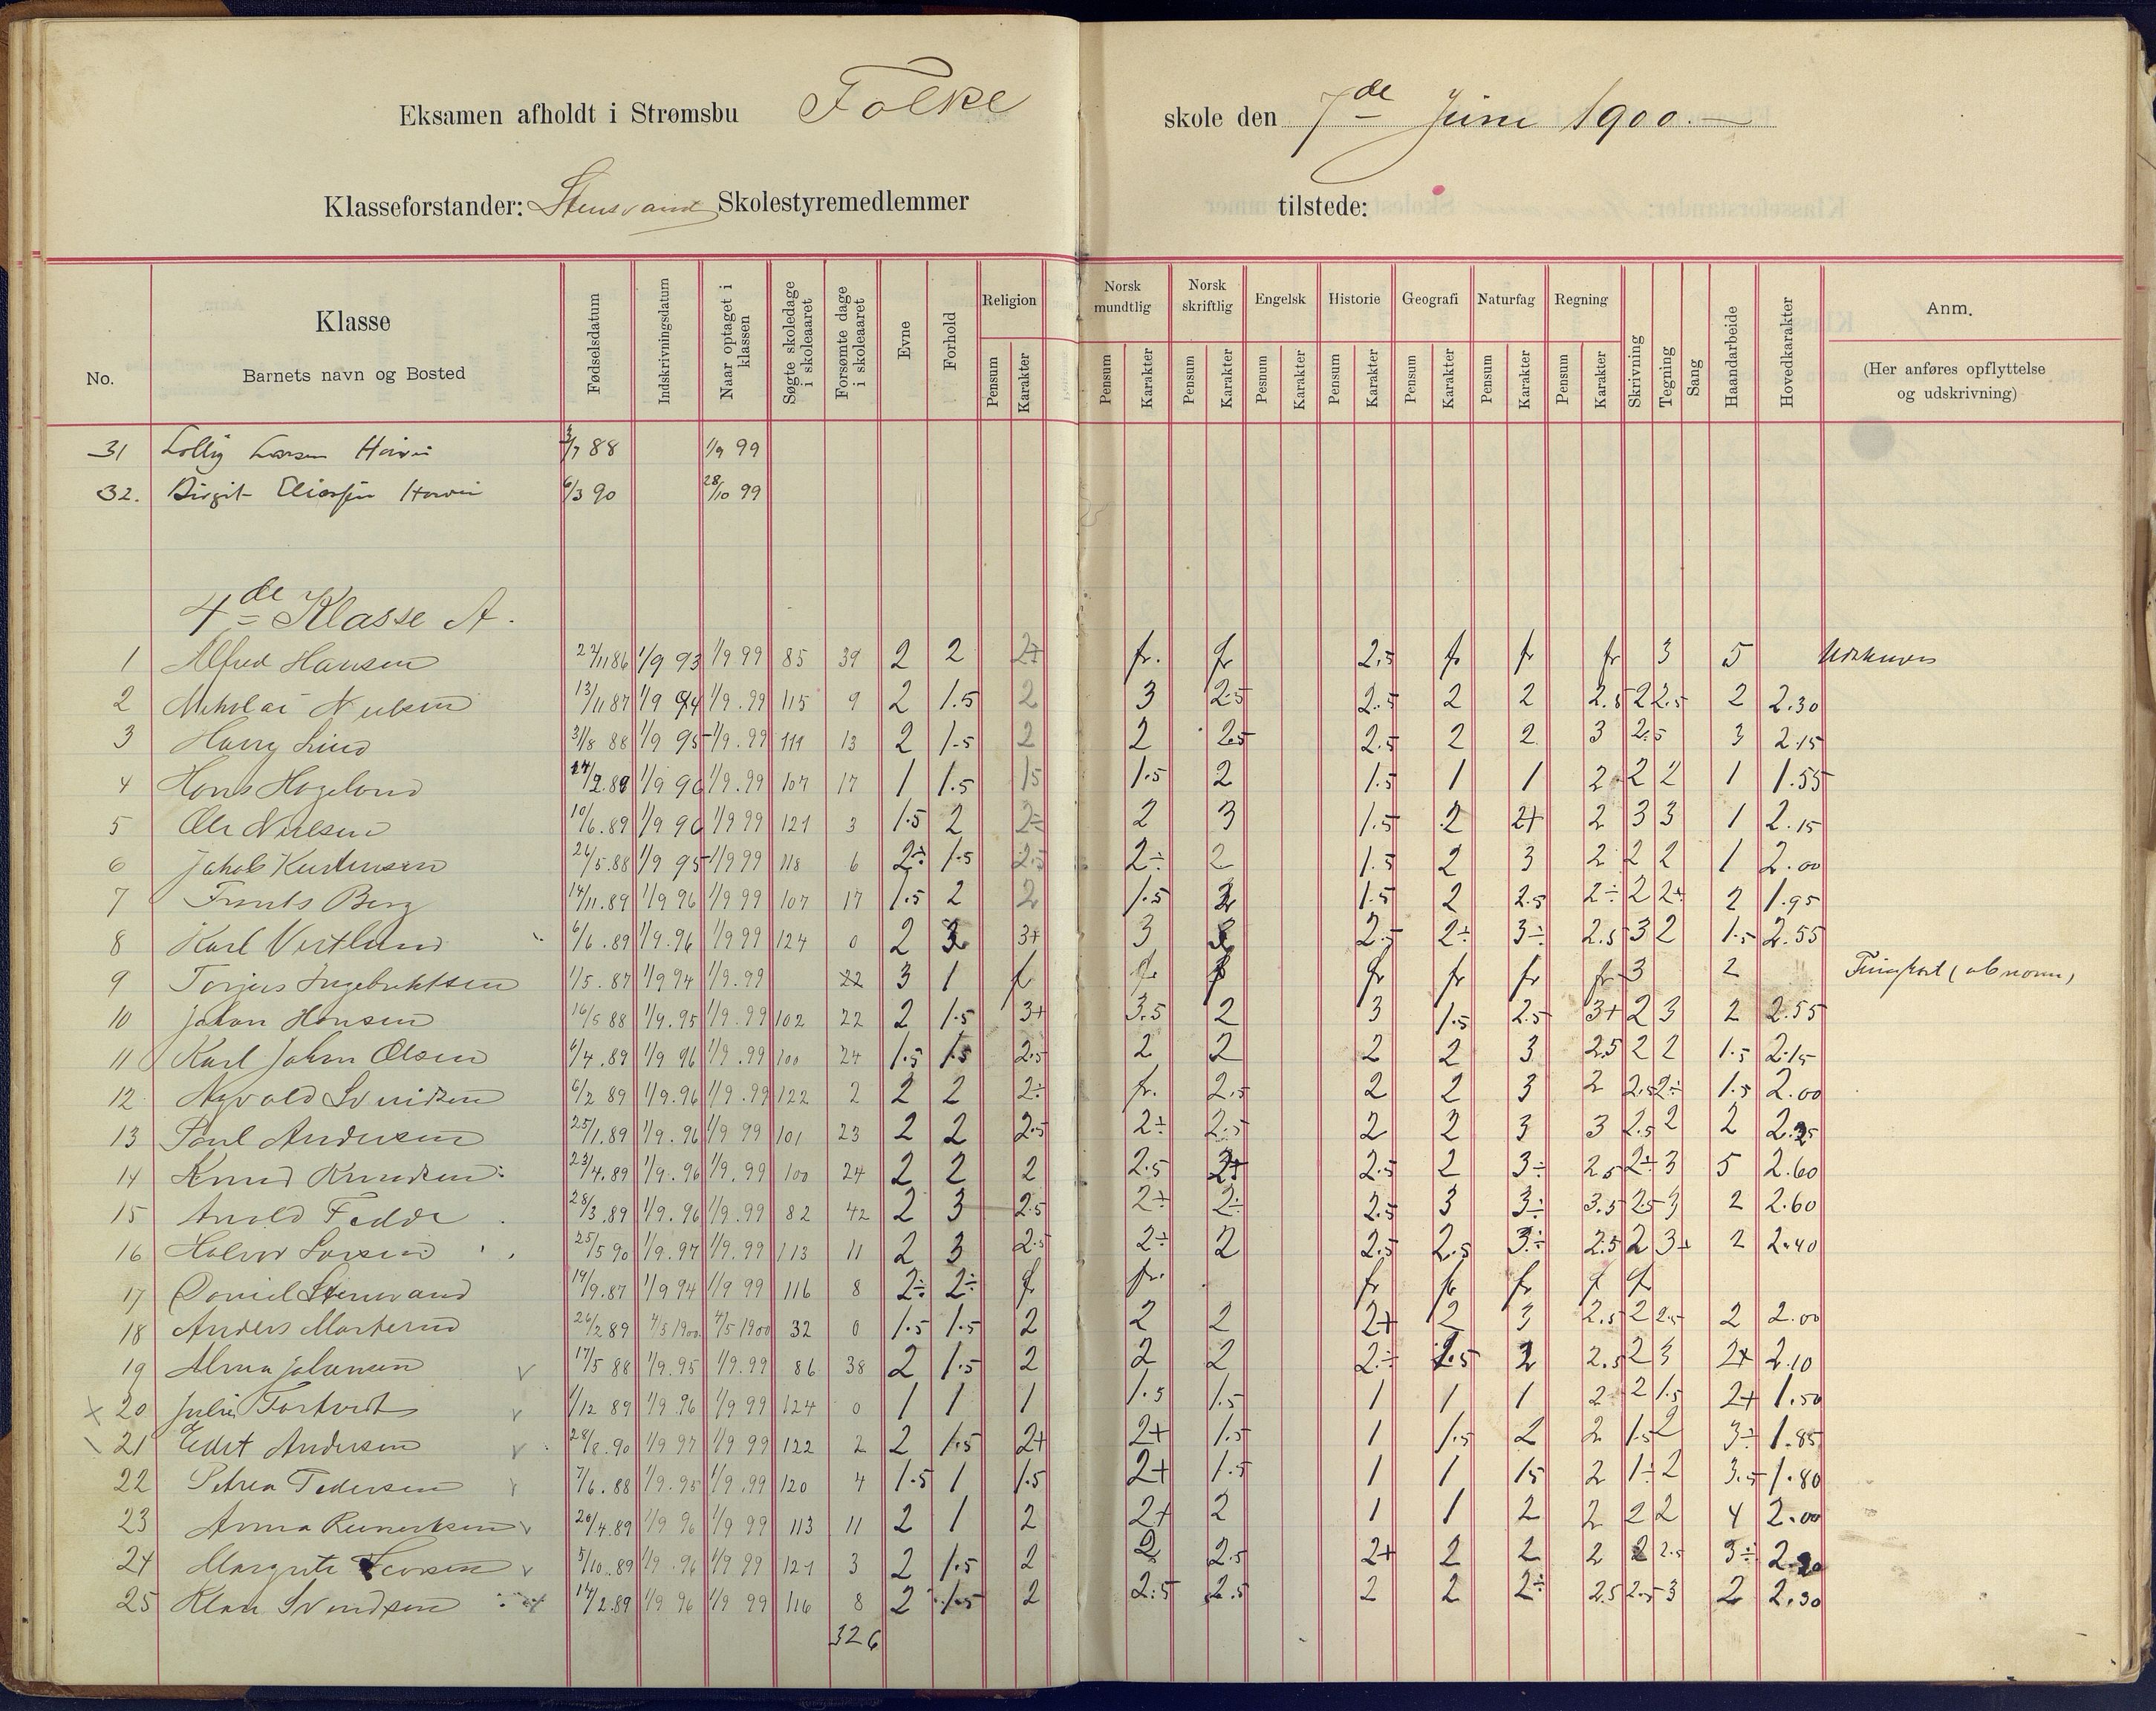 Eksamen afholdt i Strømsbu Folke skole den 7de Juni 1900.—
Klasseforstander: Stensvand Skolestyremedlemmer tilstede:
No. Klasse Barnets navn og Bosted Fødselsdatum Indskrivningsdatum Naar optaget i klassen Søgte skoledage i skoleaaret Forsømte dage i skoleaaret Evne Forhold Religion Pensum Karakter Norsk mundtlig Pensum Karakter Norsk skriftlig Pensum Karakter Engelsk Pesnum Karakter Historie Pensum Karakter Geografi Pensum Karakter Naturfag Pensum Karakter Regning Pensum Karakter Skrivning Tegning Sang Haandarbeide Hovedkarakter Anm. (Her anføres opflyttelse og udskrivning)
31 Lolly Larsen 3/7 88 1/9 99
32. Birgit Eliassen 6/3 90 28/10 99
4de Klasse A.
1 Alfred Hansen 22/11 86 1/9 93 1/9 99 85 39 2 2 2+ fr. fr 2.5 fr fr fr 3 5 Udskreves
2 Nikolai Nielsen 13/11 87 1/9 94 1/9.99 115 9 2 1.5 2 3 2.5 2.5 2 2 2.5 2 2.5 2 2.30
3 Harry Lind 31/8 88 1/9 95 1/9.99 111 13 2 1.5 2 2 2.5 2.5 2 2 3 2.5 3 2.15
4 Hans Hageland 1/9 96 1/9.99 107 17 1 1.5 1.5 1.5 2 1.5 1 1 2 2 2 1 1.55
5 Ole Nielsen 10/6.89 1/9 96 1/9 99 121 3 1.5 2 2÷ 2 3 1.5 2 2+ 2 3 3 1 2.15
6 Jakob Kristensen 26/5.88 1/9 95 1/9 99 118 6 2÷ 1.5 2.5 2÷ 2 1.5 2 3 2 2 2 1 2.00
7 Frants Berg 14/11.89 1/9 96 1/9 99 107 17 1.5 2 2 1.5 2 1.5 2 2.5 2÷ 2 2+ 2 1.95
8 Karl Vestlund 6/6.89 1/9.96 1/9 99 124 0 2 3 3+ 3 3 2.5 2÷ 3÷ 2.5 3 2 1.5 2.55
9 Torjus Ingebrektsen 1/5.87 1/9 94 1/9.99 22 3 1 f fr f fr fr fr fr 3 2
10 Johan Hansen 16/5 88 1/9.95 1/9.99 102 22 2 1.5 3+ 3.5 2 3 1.5 2.5 3+ 2 3 2 2.55
11 Karl Johan Olsen 6/4.89 1/9 96 1/9.99 100 24 1.5 1.5 2.5 2 2 2 2 3 2.5 2 2 1.5 2.15
12 Agvald Svendsen 6/2 89 1/9.96 1/9.99 122 2 2 2 2÷ fr. 2.5 2 2 3 2 2.5 2÷ 1.5 2.00
13 Paul Andersen 25/1.89 1/9.96 1/9 99 101 23 2 2 2.5 2÷ 2.5 2 2 3 3 2.5 2 2 2.25
14 Knud Knudsen 23/4.89 1/9.96 1/9.99 100 24 2 2 2 2.5 2+ 2.5 2 3÷ 2.5 2÷ 3 5 2.60
15 Arold Fedde 28/3.89 1/9.96 1/9.99 82 42 2 3 2.5 2÷ 2÷ 2.5 3 3÷ 3.5 2.5 3 2 2.60
16 Halvor Larsen 25/5 90 1/9.97 1/9.99 113 11 2 3 2.5 2÷ 2 2.5 2.5 3÷ 2.5 2 3+ 2 2.40
17 Daniel Stensvand 19/9.87 1/9 94 1/9 99 116 8 2÷ 2÷ f fr. fr fr fr f f
18 Anders Mortensen 26/2 89 4/5 1900 4/5 1900 32 0 1.5 1.5 2 2 2 2+ 2 3 2.5 2 2.5 2 2.00
19 Alma Johansen 17/5 88 1/9.95 1/9.99 86 38 2 1.5 2 2 2 2÷ 2.5 2 2.5 2 3 2+ 2.10
20 Julie Tartvedt 1/12 89 1/9.96 1/9 99 124 0 1 1 1 1.5 1.5 1 1 1 2 2 1.5 2+ 1.50
21 Edit Andersen 28/8.90 1/9 97 1/9 99 122 2 2 1.5 2+ 2+ 1.5 1 1.5 2 2 1.5 2 3÷ 1.85
22 Petrea Pedersen 7/6.88 1/9.95 1/9.99 120 4 1.5 1 1.5 2+ 1.5 1 1 1.5 2 1÷ 2 3.5 1.80
23 Anna Reinertsen 20/4.89 1/9 96 1/9 99 113 11 2 1 2 2+ 2 1 1 2 2 2 2 4 2.00
24 Margrete Larsen 5/10.89 1/9.96 1/9 99 121 3 2 1.5 2 2 2.5 2+ 2 2 2 2 2.5 3÷ 2.20
25 Klara Svendsen 14/2.89 1/9 96 1/9 99 116 8 2 1.5 2 2.5 2.5 2 2 2÷ 2.5 2.5 3 2 2.30
326